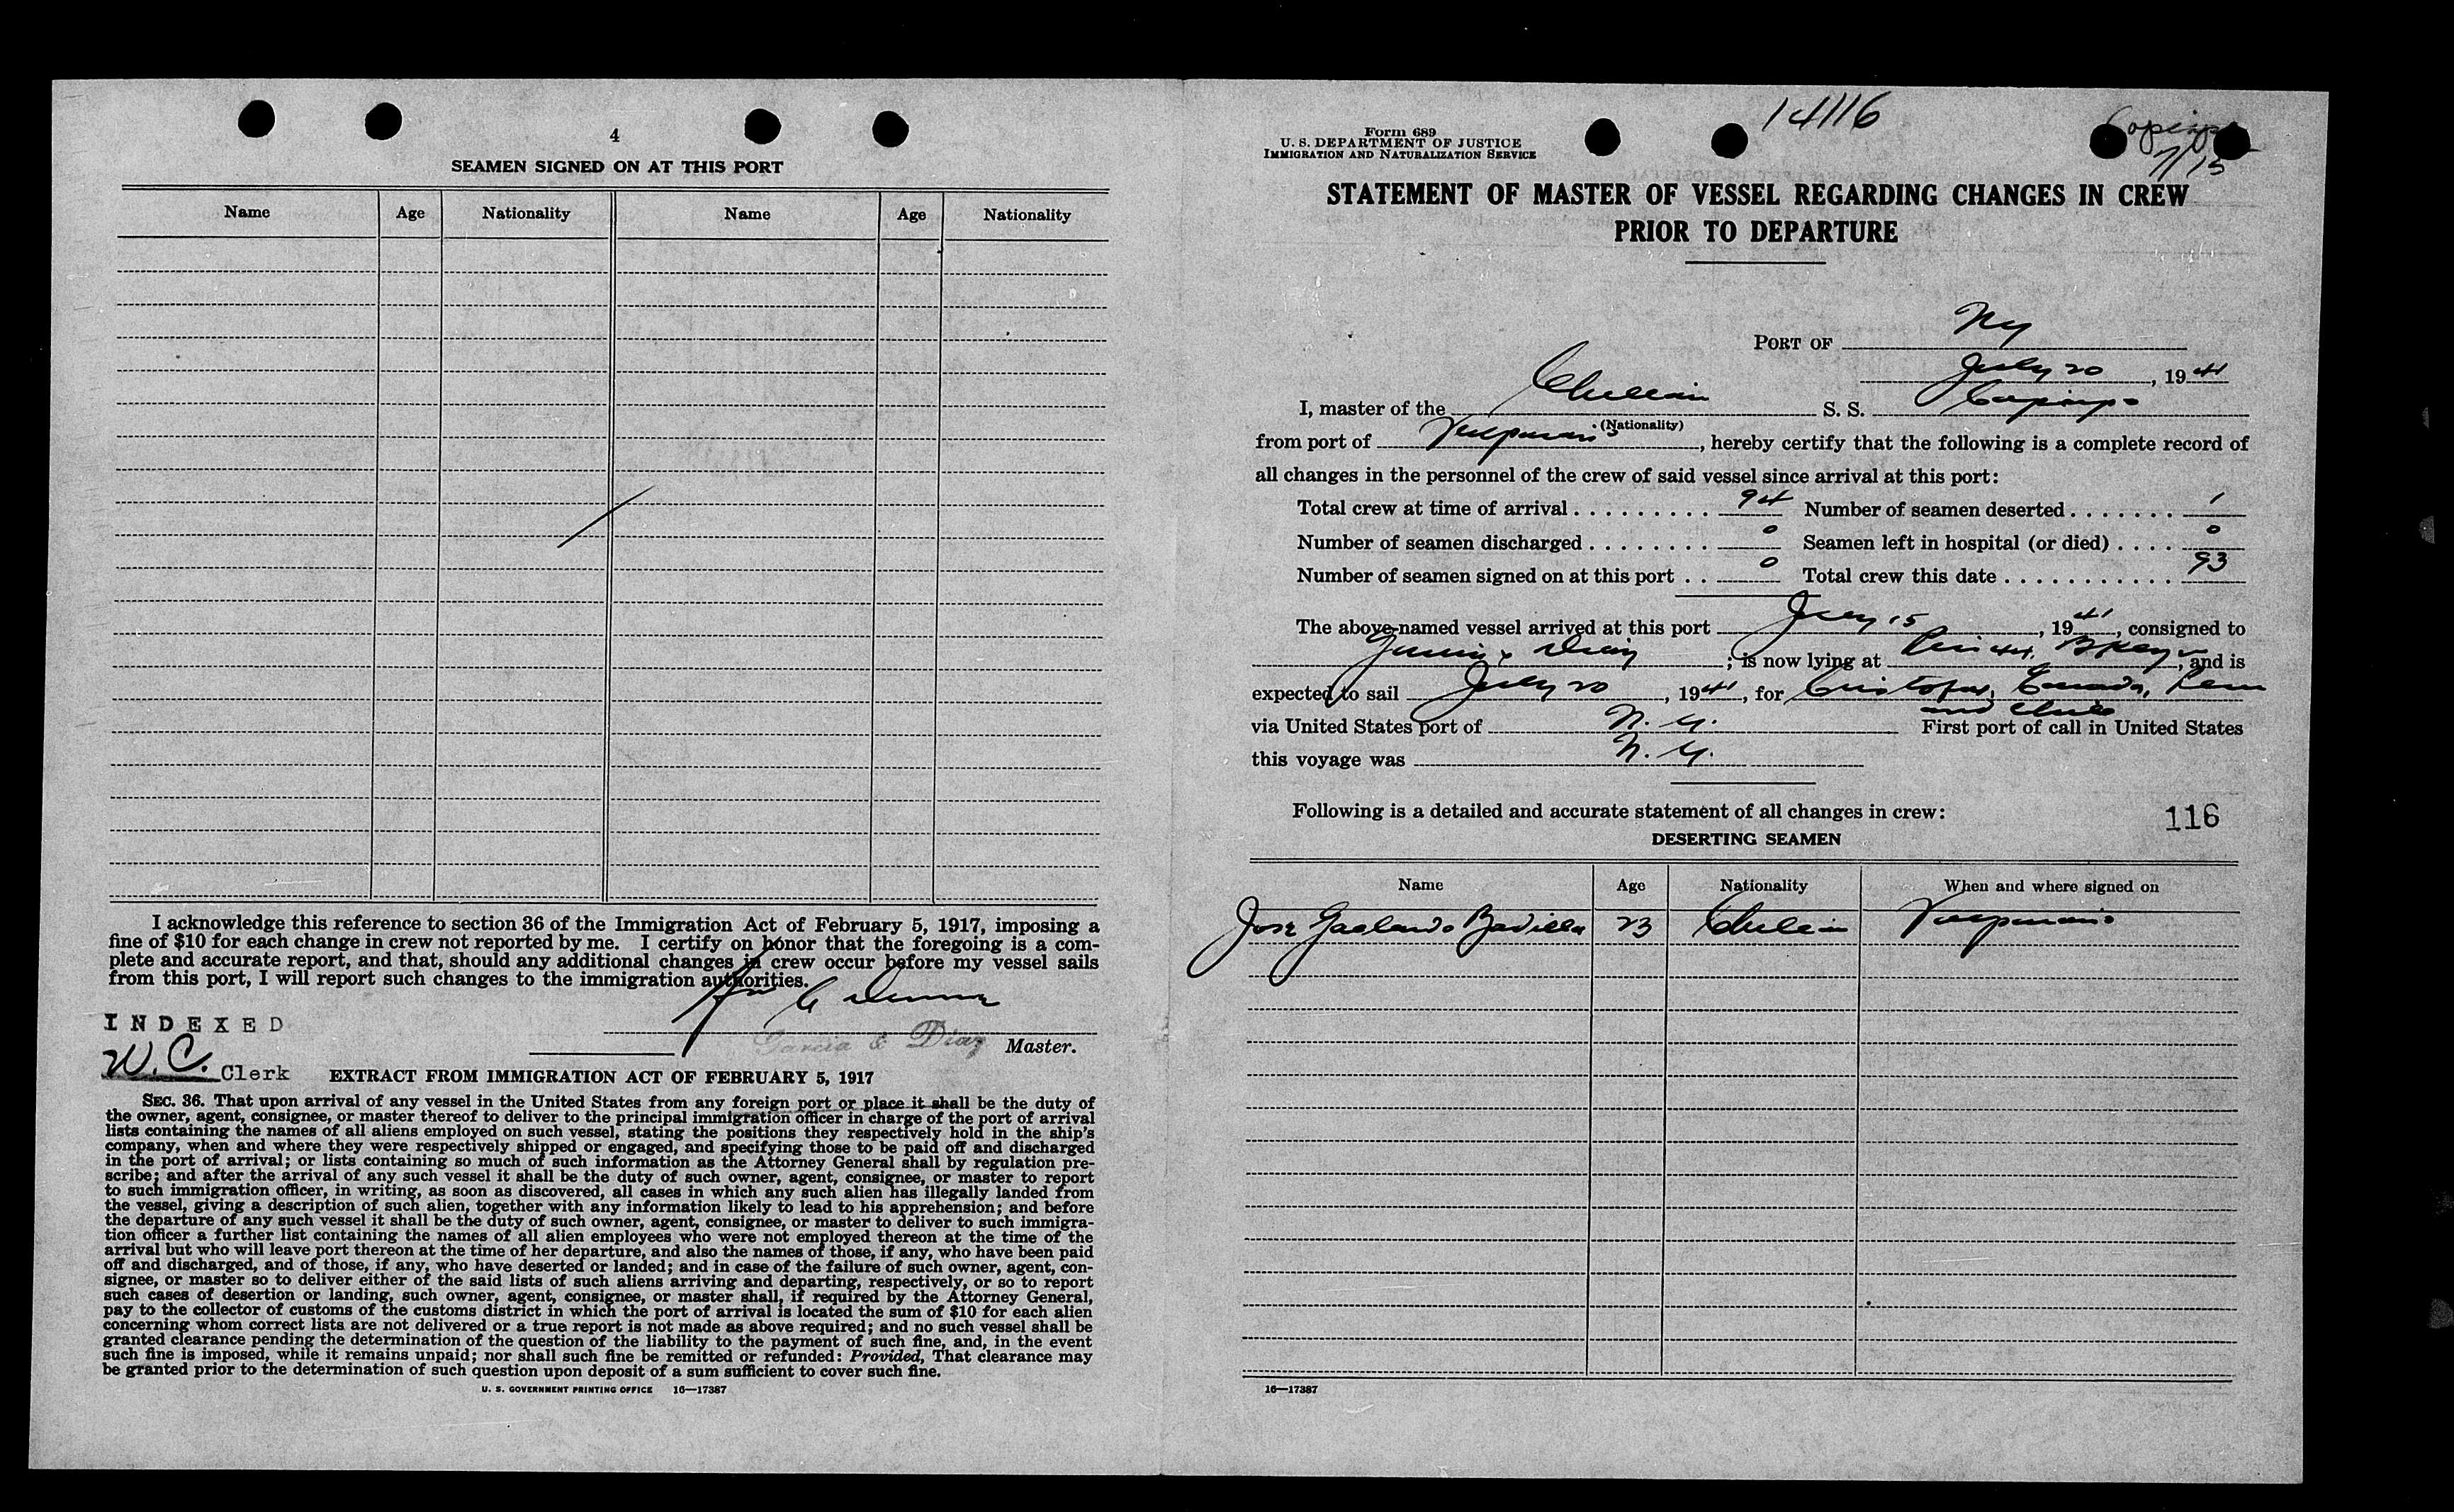 4
SEAMEN SIGNED ON AT THIS PORT
Name Age Nationality Name Age Nationality
I acknowledge this reference to section 36 of the Immigration Act of February 5, 1917, imposing a
fine of $10 for each change in crew not reported by me. I certify on honor that the foregoing is a com-
plete and accurate report, and that, should any additional changes in crew occur before my vessel sails
from this port, I will report such changes to the immigration authorities.
Garcia & Diaz Master.
INDEXED
W. C. Clerk
EXTRACT FROM IMMIGRATION ACT OF FEBRUARY 5, 1917
SEC. 36. That upon arrival of any vessel in the United States from any foreign port or place it shall be the duty of
the owner, agent, consignee, or master thereof to deliver to the principal immigration officer in charge of the port of arrival
lists containing the names of all aliens employed on such vessel, stating the positions they respectively hold in the ship's
company, when and where they were respectively shipped or engaged, and specifying those to be paid off and discharged
in the port of arrival; or lists containing so much of such information as the Attorney General shall by regulation pre-
scribe; and after the arrival of any such vessel it shall be the duty of such owner, agent, consignee, or master to report
to such immigration officer, in writing, as soon as discovered, all cases in which any such alien has illegally landed from
the vessel, giving a description of such alien, together with any information likely to lead to his apprehension; and before
the departure of any such vessel it shall be the duty of such owner, agent, consignee, or master to deliver to such immigra-
tion officer a further list containing the names of all alien employees who were not employed thereon at the time of the
arrival but who will leave port thereon at the time of her departure, and also the names of those, if any, who have been paid
off and discharged, and of those, if any, who have deserted or landed; and in case of the failure of such owner, agent, con-
signee, or master so to deliver either of the said lists of such aliens arriving and departing, respectively, or so to report
such cases of desertion or landing, such owner, agent, consignee, or master shall, if required by the Attorney General,
pay to the collector of customs of the customs district in which the port of arrival is located the sum of $10 for each alien
concerning whom correct lists are not delivered or a true report is not made as above required; and no such vessel shall be
granted clearance pending the determination of the question of the liability to the payment of such fine, and, in the event
such fine is imposed, while it remains unpaid; nor shall such fine be remitted or refunded: Provided, That clearance may
be granted prior to the determination of such question upon deposit of a sum sufficient to cover such fine.
U. S. GOVERNMENT PRINTING OFFICE 16—17387
14116
Copiapo
7/15
Form 689
U. S. DEPARTMENT OF JUSTICE
IMMIGRATION AND NATURALIZATION SERVICE
STATEMENT OF MASTER OF VESSEL REGARDING CHANGES IN CREW
PRIOR TO DEPARTURE
PORT OF Ny
July 20, 1941
I, master of the Chilean S. S. Copiapo
(Nationality)
from port of Valparaiso, hereby certify that the following is a complete record of
all changes in the personnel of the crew of said vessel since arrival at this port:
Total crew at time of arrival 94 Number of seamen deserted 1
Number of seamen discharged 0 Seamen left in hospital (or died) 0
Number of seamen signed on at this port 0 Total crew this date 93
The above-named vessel arrived at this port July 15, 1941, consigned to
Garcia & Diaz; is now lying at , and is
expected to sail July 20, 1941, for Cristobal,
and Chile
via United States port of N. Y. First port of call in United States
this voyage was N. Y.
Following is a detailed and accurate statement of all changes in crew: 116
DESERTING SEAMEN
Name Age Nationality When and where signed on
Jose 23 Chilean Valparaiso
16—17387